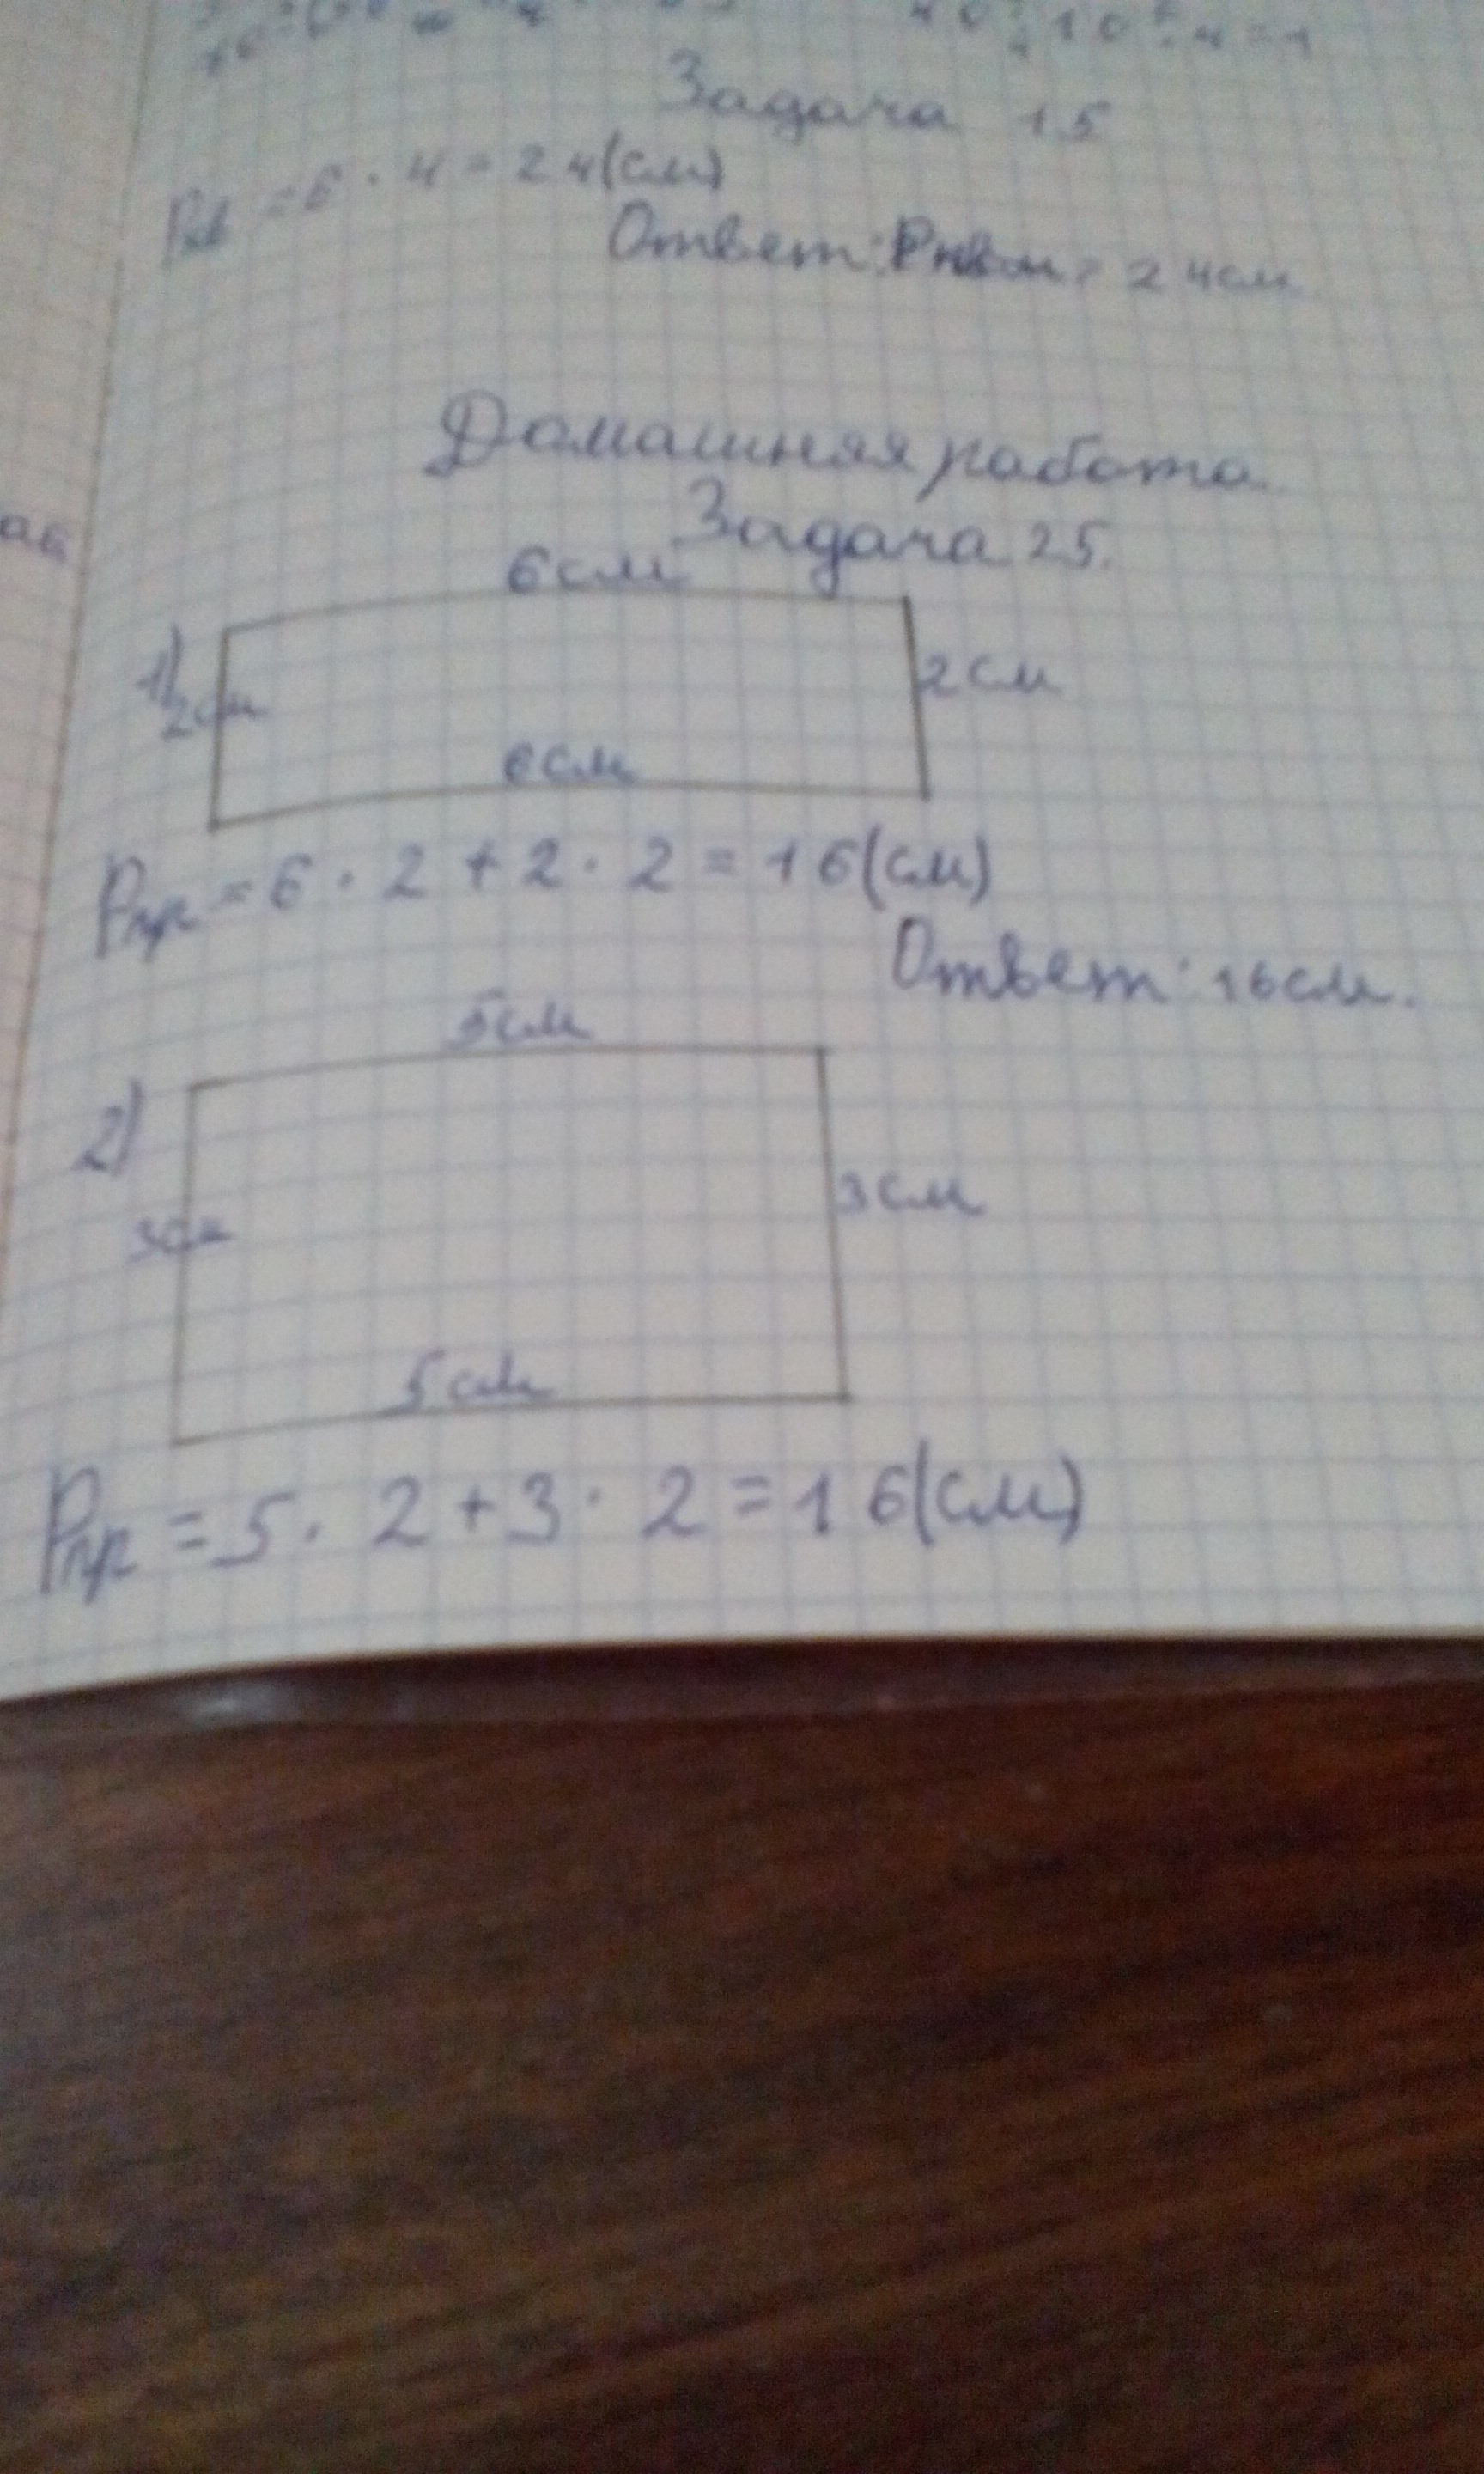 Задача 15
Ркв = 6 · 4 = 24(см)
Ответ: = 24см
Домашняя работа
Задача 25.
6см
1)
2см
2см
6см
Pпр = 6 · 2 + 2 · 2 = 16(см)
Ответ: 16см.
5см
2)
3см
3см
5см
Pпр = 5 · 2 + 3 · 2 = 16(см)